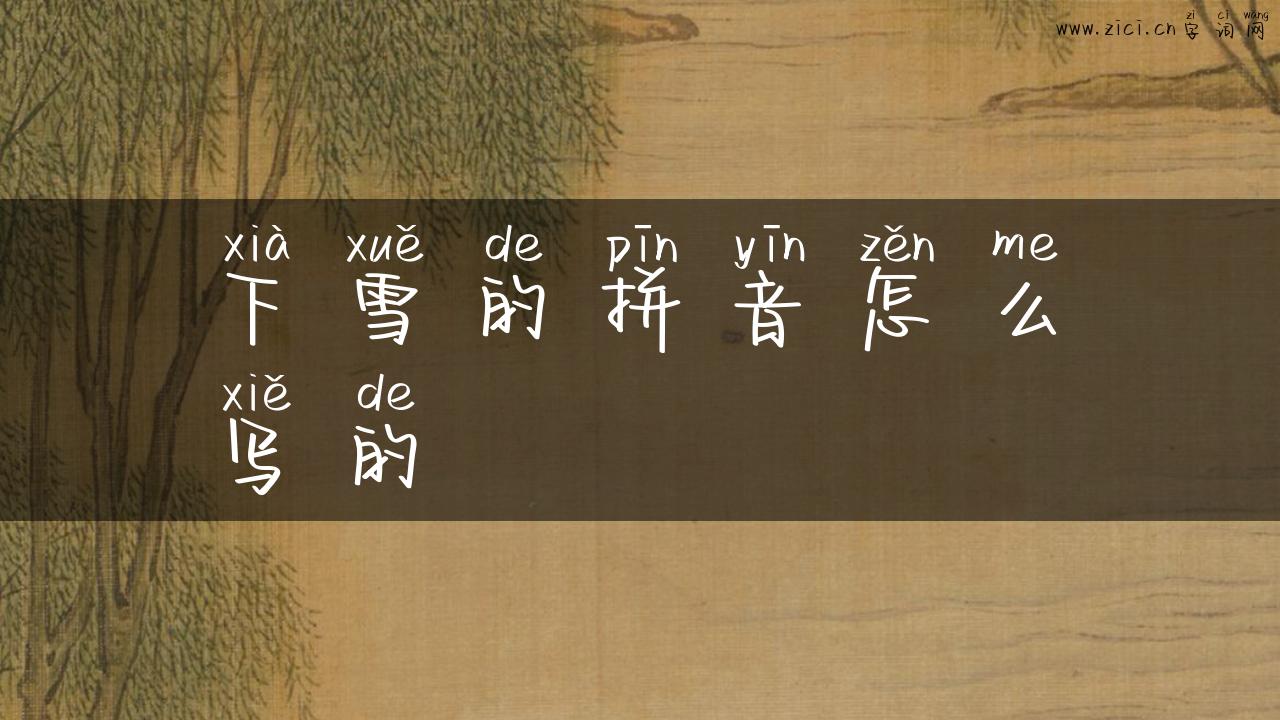 zì cí wǎng
www.zici.cn 字 词 网
xià xuě de pīn yīn zěn me
下 雪 的 拼 音 怎 么
xiě de
写 的